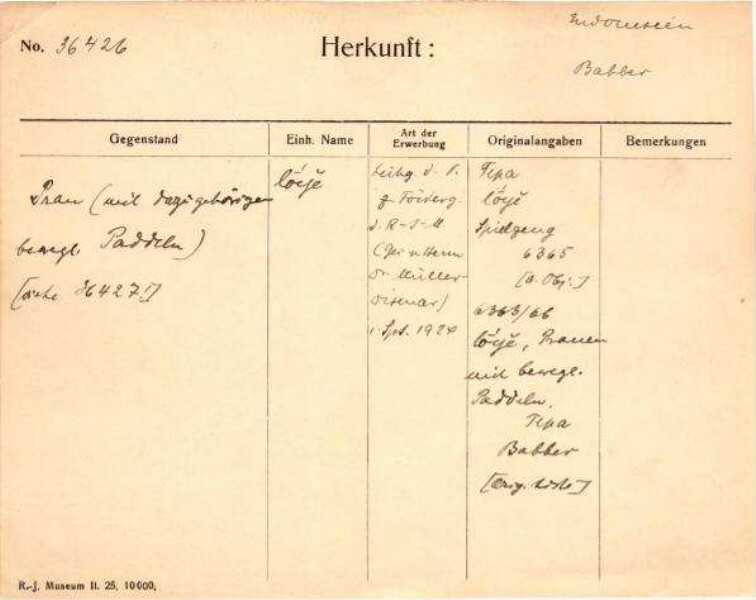 No. 36426
Herkunft:
Indonesien
Babber
Gegenstand
Einh. Name
Art der
Erwerbung
Originalangaben
Bemerkungen
Prau (mit dazugehörigen
bewegl. Paddeln)
[siehe 36427!]
lóije
Leihg. d. V.
z. Förderg.
d. R-J-M.
(Herrn
Dr. Müller-
Wismar)
1. Spt. 1924
Tepa
lóije
Spielzeug
6365
[a. Obj.]
6363/66
lóije, Prauen
mit bewegl.
Paddeln.
Tepa
Babber
[Orig. Liste]
R.-J. Museum II. 25, 10000.